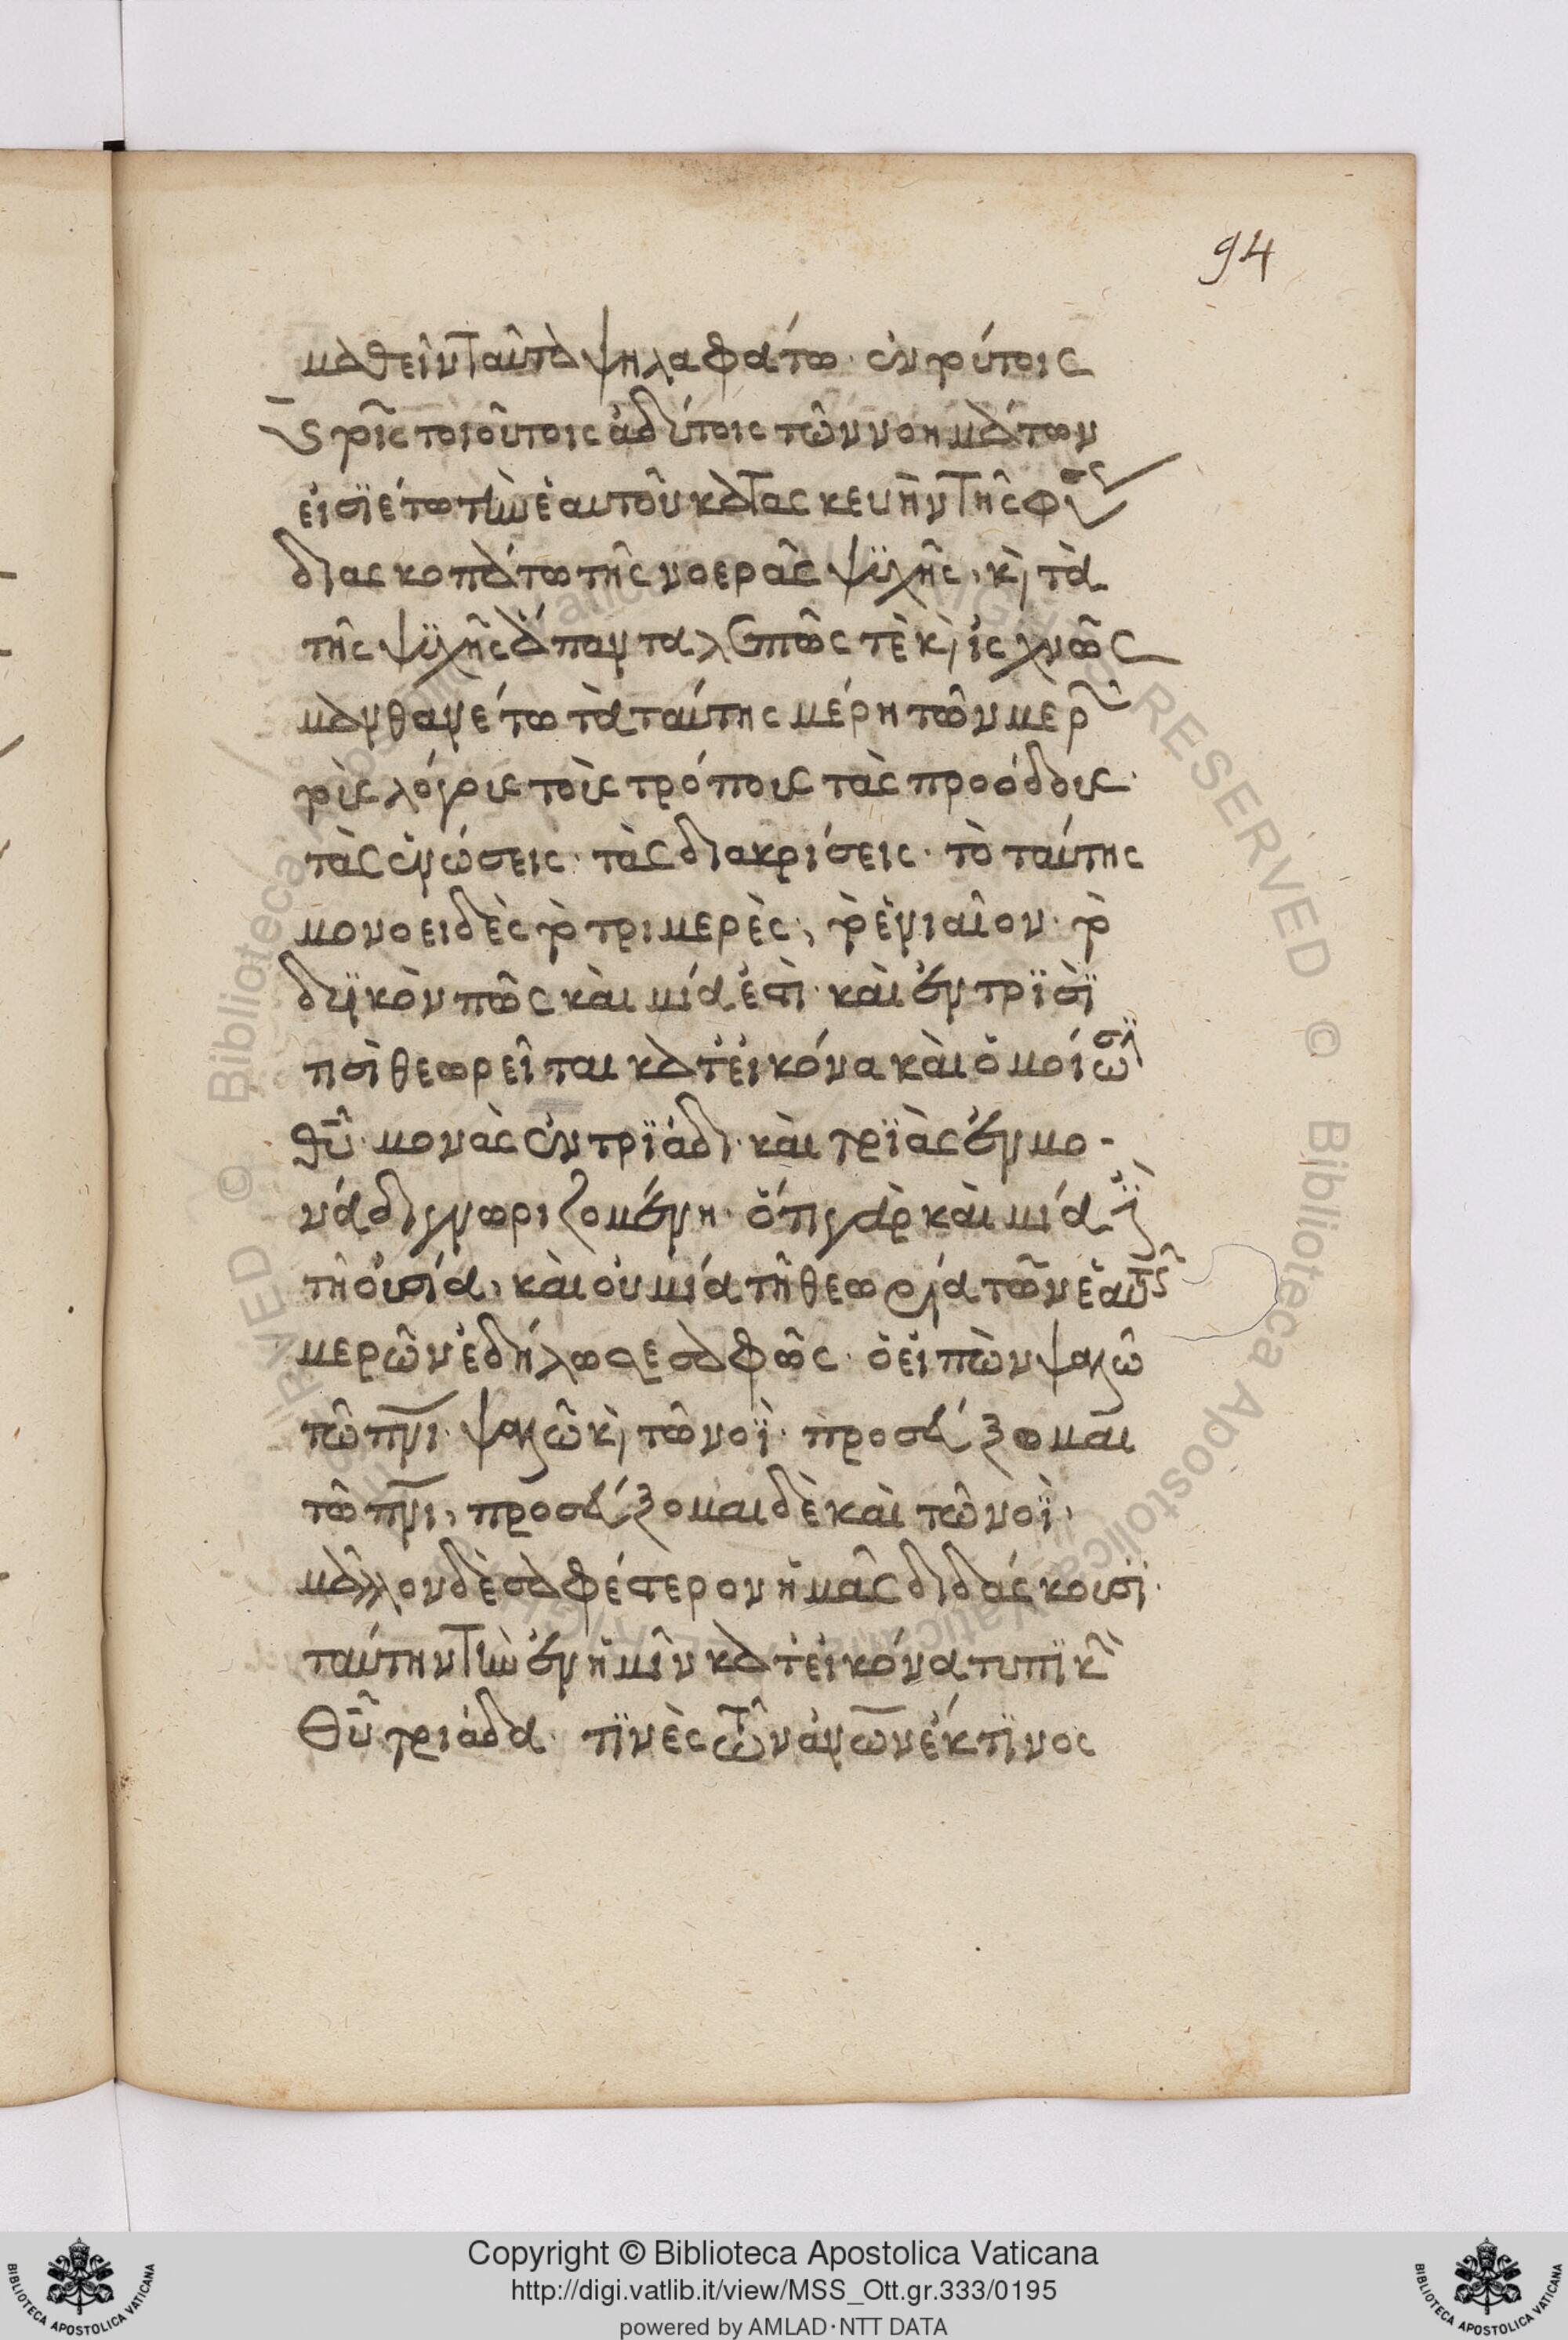 94
μαθεῖν ταῦτα ψηλαφάτω· ἐν τούτοις
τοῖς τοιούτοις ἀδύτοις τῶν νοημάτων
εἰσϊέτω τὴν ἑαυτοῦ κατασκευὴν τῆς φύσ
διασκοπάτω τῆς νοερᾶς ψϋχῆς, κ̀ τὰ
τῆς ψϋχῆς ἅπαντα λεπτῶς τὲ κ̀ ἰσχνῶς
μανθανέτω τὰ ταύτης μέρη τῶν μερῶν
τοὺς λόγους τοὺς τρόπους τὰς προόδους·
τὰς ἑνώσεις· τὰς διακρίσεις· τὸ ταύτης
μονοειδὲς τὸ τριμερὲς, τὸ ἑνιαῖον· τὸ
δυϊκὸν πῶς καὶ μία ἐστὶ· καὶ ἐν τρϊσὶ
τισὶ θεωρεῖται κατ' εἰκόνα καὶ ὁμοίωσϊ
θῡ· μονὰς ἐν τρϊάδι· καὶ τρϊὰς ἐν μο-
νάδι γνωριζομένη· ὅτι γὰρ καὶ μία
τῆ οὐσία, καὶ οὐ μία τῆ θεωρία τῶν ἑαυτῆς
μερῶν ἐδήλωσε σαφῶς· ὁ εἰπὼν ψαλῶ
τῶ πνι· ψαλῶ κ̀ τῶ νοῒ· προσεύξομαι
τῶ πνι, προσεύξομαι δὲ καὶ τῶ νοῒ·
μᾶλλον δὲ σαφέστερον ἡμᾶς διδάσκουσϊ·
ταύτην τὴν ἐν ἡμῖν κατ' εἰκόνα τυπϊκὴ
θῡ τριάδα· τϊνὲς τῶν ἀνων ἐκ τϊνος
Copyright © Biblioteca Apostolica Vaticana
http://digi.vatlib.it/view/MSS_Ott.gr.333/0195
powered by AMLAD·NTT DATA
BIBLIOTECA APOSTOLICA VATICANA
BIBLIOTECA APOSTOLICA VATICANA